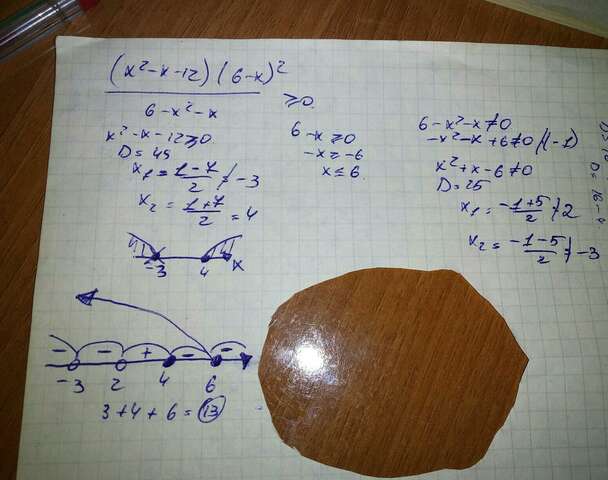 (x²-x-12)(6-x)²
6-x²-x
≥0
x²-x-12≥0
D=49
x₁=1-7/2≠-3
x₂=1+7/2=4
-3 4 x
6-x≥0
-x≥-6
x≤6
6-x²-x≠0
-x²-x+6≠0 /(-1)
x²+x-6≠0
D=25
x₁=-1+5/2≠2
x₂=-1-5/2≠-3
- - + - -
-3 2 4 6
3+4+6=13